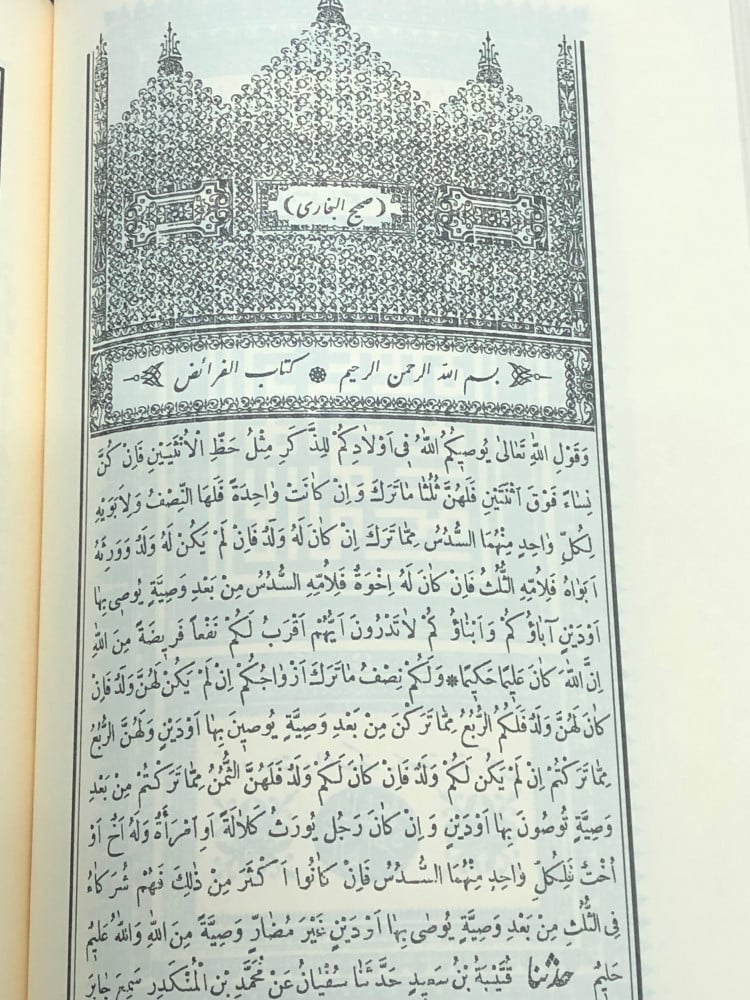 (صحيح البخارى)
بسم الله الرحمن الرحيم ❁ كتاب الفرائض
وَقَوْلِ اللهِ تَعَالىٰ يُوصِيكُمُ اللهُ فِى اَوْلاَدِكُمْ لِلذَّكَرِ مِثْلُ حَظِّ الْاُنْثَيَيْنِ فَاِنْ كُنَّ
نِسَاءً فَوْقَ اثْنَتَيْنِ فَلَهُنَّ ثُلُثَا مَا تَرَكَ وَ اِنْ كَانَتْ وٰاحِدَةً فَلَهَا النِّصْفُ وَلِاَبَوَيْهِ
لِكُلِّ وٰاحِدٍ مِنْهُمَا السُّدُسُ مِمَّا تَرَكَ اِنْ كَانَ لَهُ وَلَدٌ فَاِنْ لَمْ يَكُنْ لَهُ وَلَدٌ وَوَرِثَهُ
اَبَوٰاهُ فَلِاُمِّهِ الثُّلُثُ فَاِنْ كَانَ لَهُ اِخْوَةٌ فَلِاُمِّهِ السُّدُسُ مِنْ بَعْدِ وَصِيَّةٍ يُوصِى بِهَا
اَوْدَيْنٍ آبَاؤُ كُمْ وَ اَبْنَاؤُ كُمْ لاَ تَدْرُونَ اَيُّهُمْ اَقْرَبُ لَكُمْ نَفْعاً فَرِيضَةً مِنَ اللهِ
اِنَّ اللهَ كَانَ عَلِيمًا حَكِيمًا * وَلَكُمْ نِصْفُ مَا تَرَكَ اَزْوٰاجُكُمْ اِنْ لَمْ يَكُنْ لَهُنَّ وَلَدٌ فَاِنْ
كَانَ لَهُنَّ وَلَدٌ فَلَكُمُ الرُّبُعُ مِمَّا تَرَكْنَ مِنْ بَعْدِ وَصِيَّةٍ يُوصِينَ بِهَا اَوْدَيْنٍ وَلَهُنَّ الرُّبُعُ
مِمَّا تَرَكْتُمْ اِنْ لَمْ يَكُنْ لَكُمْ وَلَدٌ فَاِنْ كَانَ لَكُمْ وَلَدٌ فَلَهُنَّ الثُّمُنُ مِمَّا تَرَكْتُمْ مِنْ بَعْدِ
وَصِيَّةٍ تُوصُونَ بِهَا اَوْدَيْنٍ وَ اِنْ كَانَ رَجُلٌ يُورَثُ كَلاٰلَةً اَوِ امْرَأَةٌ وَلَهُ اَخٌ اَوْ
اُخْتٌ فَلِكُلِّ وٰاحِدٍ مِنْهُمَا السُّدُسُ فَاِنْ كَانُوا اَكْثَرَ مِنْ ذٰلِكَ فَهُمْ شُرَكَاءُ
فِى الثُّلُثِ مِنْ بَعْدِ وَصِيَّةٍ يُوصٰى بِهَا اَوْدَيْنٍ غَيْرَ مُضَارٍّ وَصِيَّةً مِنَ اللهِ وَاللهُ عَلِيمٌ
حَلِيمٌ حدثنا قُتَيْبَةُ بْنُ سَعِيدٍ حَدَّثَنَا سُفْيَانُ عَنْ مُحَمَّدِ بْنِ الْمُنْكَدِرِ سَمِعَ جَابِرَ